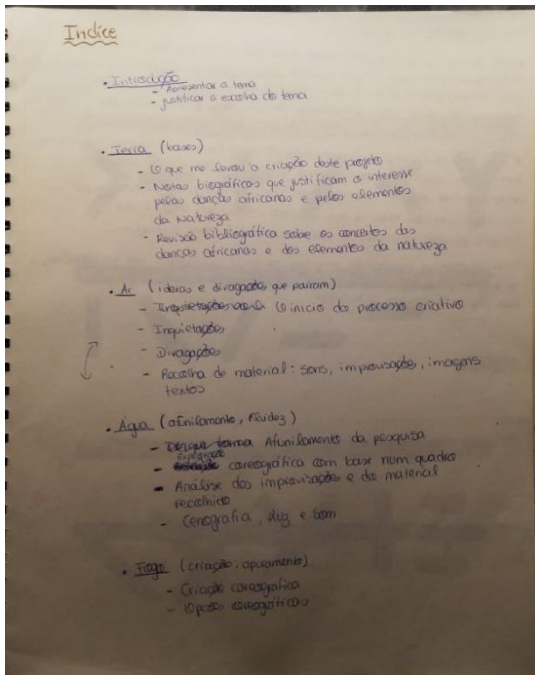 Indice
• Introdução
- Apresentar o tema
- justificar a escolha do tema
• Terra (bases)
- O que me levou a criação deste projeto
- Notas biográficas que justificam o interesse
pelas danças africanas e pelos elementos
da natureza
- Revisão bibliográfica sobre os conceitos das
danças africanas e dos elementos da natureza
• Ar (ideias e divagações que pairam)
- O inicio do processo criativo
- Inquietações
- Divagações
- Recolha de material: sons, improvisações, imagens
textos
• Água (afunilamento, fluidez)
- Afunilamento da pesquisa
- coreográfica com base num quadro
- Análise das improvisações e do material
recolhido
- Cenografia, Luz e Som
• Fogo (criação, apuramento)
- Criação coreográfica
- Opções coreográficas